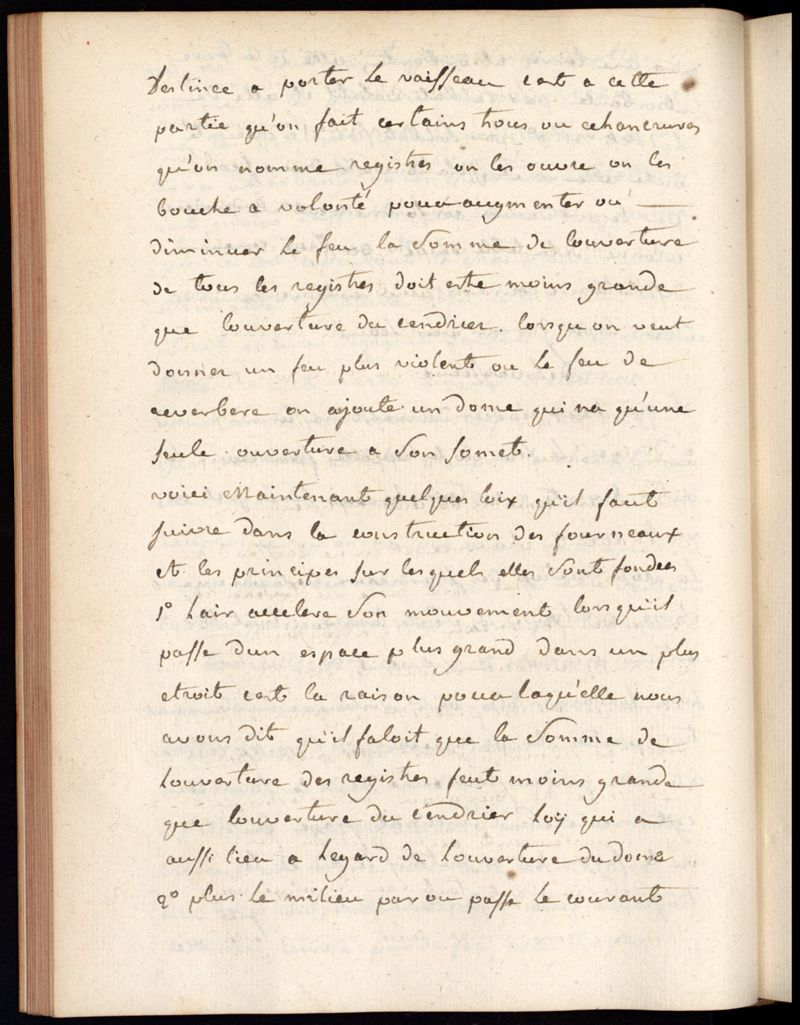 destinee a porter le vaisseau cest a cette
partie qu'on fait certains trous ou echancrures
qu'on nomme registres on les ouvre on les
bouche a volonté pour augmenter ou
diminuer le feu la somme de louverture
de tous les registres doit estre moins grande
que louverture du cendrier. lorsqu'on veut
donner un feu plus violent ou le feu de
reverbere on ajoute un dome qui na qu'une
seule ouverture a son somet.
voici maintenant quelques loix qu'il faut
suivre dans la construction des fourneaux
et les principes sur lesquels elles sont fondees
1° lair accelere son mouvement lorsqu'il
passe dun espace plus grand dans un plus
etroit cest la raison pour laqu'elle nous
avons dit qu'il faloit que la somme de
louverture des registres feut moins grande
que louverture du cendrier loÿ qui a
aussi lieu a legard de louverture du dome
2° plus le milieu par ou passe le courant